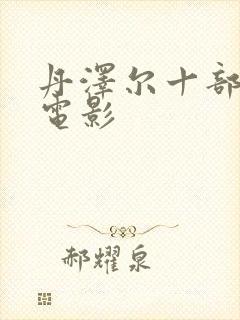 丹澤尔十部
電影
郝耀泉